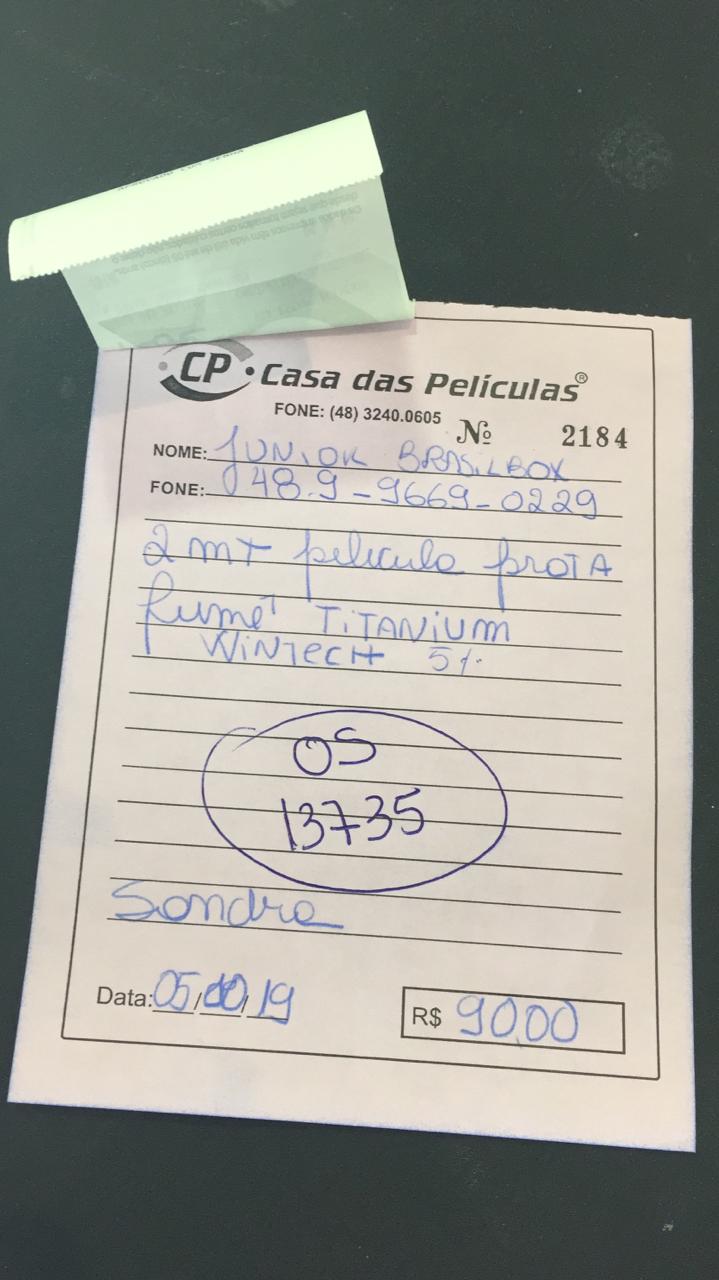 CP • Casa das Películas®
FONE: (48) 3240.0605
Nº 2184
NOME: JUNIOR BRASILBOX
FONE: 48.9-9669-0229
2 mt pelicula prata
fumê TITANIUM
WINTECH 5%
OS
13735
Sandra
Data: 05/10/19
R$ 90,00